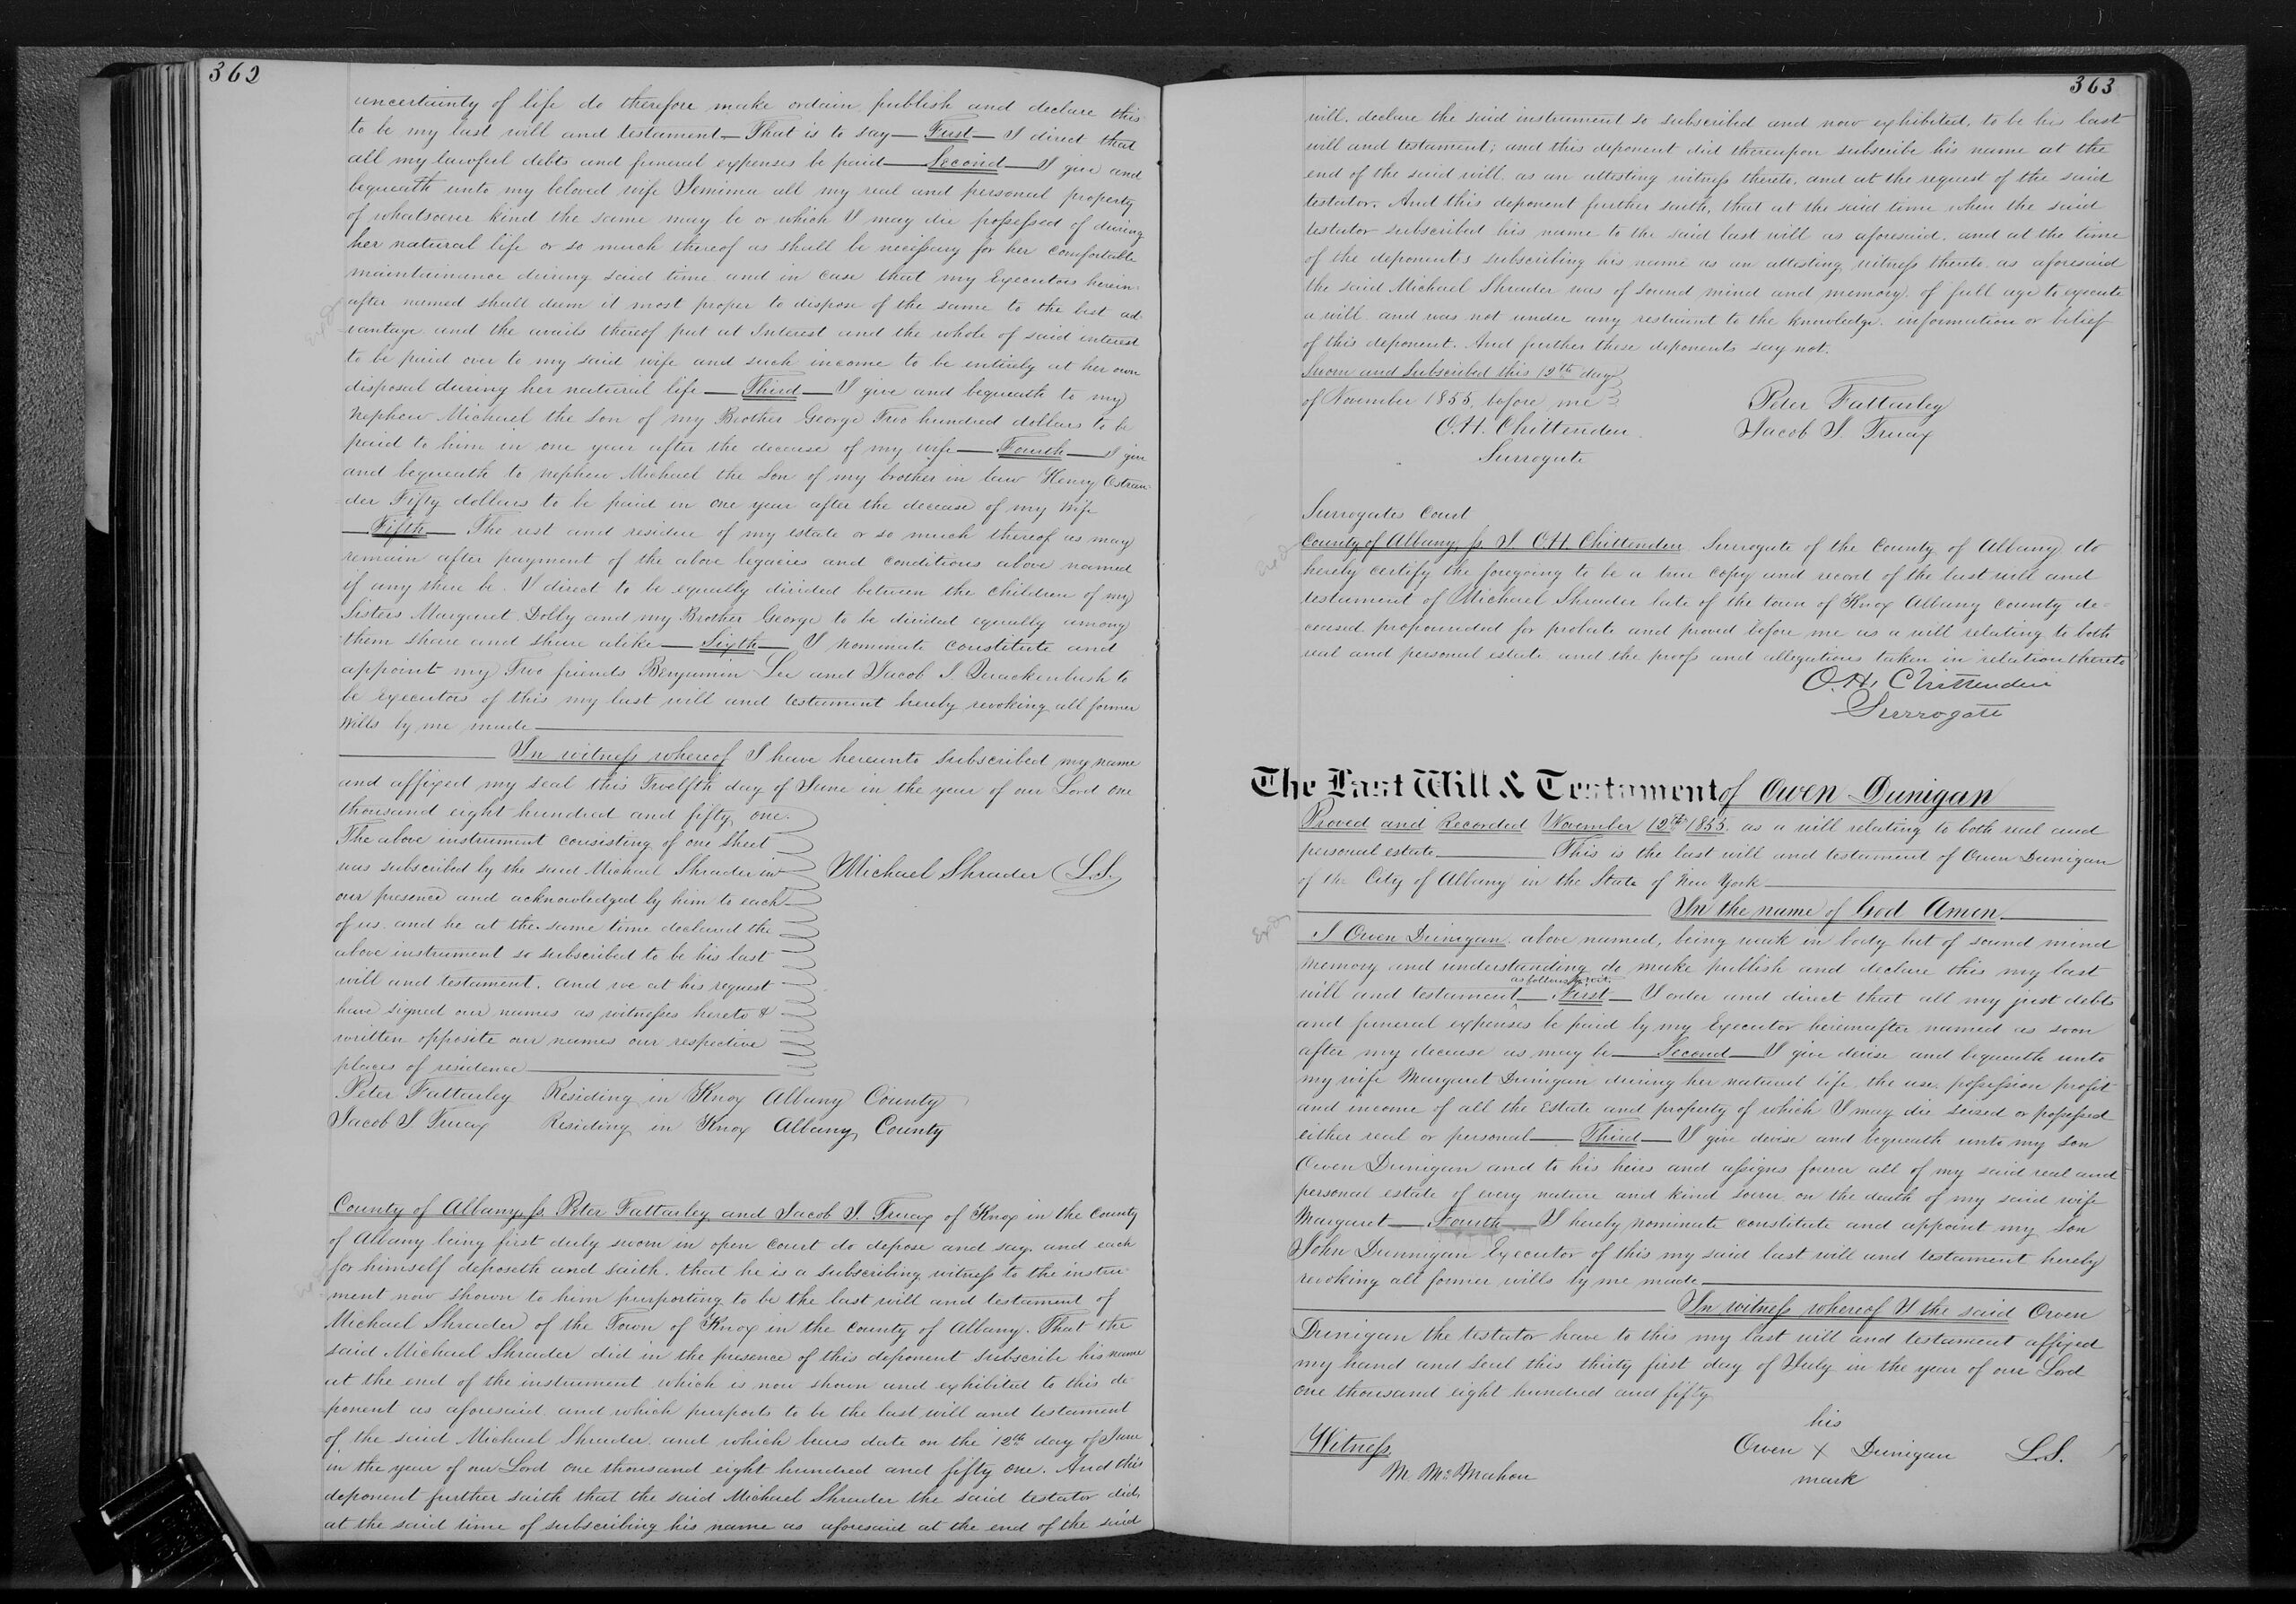 362
uncertainty of life do therefore make ordain publish and declare this
to be my last will and testament — That is to say — First — I direct that
all my lawful debts and funeral expenses be paid — Second — I give and
bequeath unto my beloved wife Jemima all my real and personal property
of whatsoever kind the same may be or which I may die possessed of during
her natural life or so much thereof as shall be necessary for her comfortable
maintainance during said time and in case that my Executors herein-
after named shall deem it most proper to dispose of the same to the best ad
vantage and the avails thereof put at Interest and the whole of said interest
to be paid over to my said wife and such income to be entirely at her own
disposal during her natural life — Third — I give and bequeath to my
Nephew Michael the son of my Brother George Two hundred dollars to be
paid to him in one year after the decease of my wife — Fourth — I give
and bequeath to nephew Michael the Son of my brother in law Henry Ostran-
der Fifty dollars to be paid in one year after the decease of my Wife
— Fifth — The rest and residue of my estate or so much thereof as may
remain after payment of the above legacies and conditions above named
if any there be. I direct to be equally divided between the children of my
Sisters Margaret Dolly and my Brother George to be divided equally among
them share and share alike — Sixth — I nominate constitute and
appoint my Two friends Benjamin Lee and Jacob I. Quackenbush to
be executors of this my last will and testament hereby revoking all former
Wills by me made
In witness whereof I have hereunto subscribed my name
and affixed my seal this Twelfth day of June in the year of our Lord one
thousand eight hundred and fifty one.
The above instrument consisting of one sheet
was subscribed by the said Michael Shrader in
our presence and acknowledged by him to each
of us. and he at the same time declared the
above instrument so subscribed to be his last
will and testament. and we at his request
have signed our names as witnesses hereto &
written opposite our names our respective
places of residence
Michael Shrader L.S.
Peter Fattarley Residing in Knox Albany County
Jacob I Truax Residing in Knox Albany County
County of Albany ss Peter Fattarley and Jacob I. Truax of Knox in the County
of Albany being first duly sworn in open court do depose and say. and each
for himself deposeth and saith. that he is a subscribing witness to the instru-
ment now shown to him purporting to be the last will and testament of
Michael Shrader of the Town of Knox in the county of Albany. That the
said Michael Shrader did in the presence of this deponent subscribe his name
at the end of the instrument which is now shown and exhibited to this de
ponent as aforesaid and which purports to be the last will and testament
of the said Michael Shrader and which bears date on the 12th day of June
in the year of our Lord one thousand eight hundred and fifty one. And this
deponent further saith that the said Michael Shrader the said testator did,
at the said time of subscribing his name as aforesaid at the end of the said
363
will. declare the said instrument so subscribed and now exhibited, to be his last
will and testament; and this deponent did thereupon subscribe his name at the
end of the said will. as an attesting witness thereto, and at the request of the said
testator. And this deponent further saith, that at the said time when the said
testator subscribed his name to the said last will as aforesaid. and at the time
of the deponents subscribing his name as an attesting witness thereto as aforesaid
the said Michael Shrader was of sound mind and memory, of full age to execute
a will and was not under any restraint to the knowledge. information or belief
of this deponent. And further these deponents say not.
Sworn and Subscribed this 12th day
of November 1855, before me
O.H. Chittenden
Surrogate
Peter Fattarley
Jacob I. Truax
Surrogates Court
County of Albany ss I O.H. Chittenden Surrogate of the County of Albany do
hereby certify the foregoing to be a true copy and record of the last will and
testament of Michael Shrader late of the town of Knox Albany county de-
ceased propounded for probate and proved before me as a will relating to both
real and personal estate and the proofs and allegations taken in relation thereto
O.H. Chittenden
Surrogate
The Last Will & Testament of Owen Dunigan
Proved and Recorded November 12th 1855. as a will relating to both real and
personal estate — This is the last will and testament of Owen Dunigan
of the City of Albany in the State of New York
In the name of God Amen
I Owen Dunigan above named, being weak in body but of sound mind
memory and understanding do make publish and declare this my last
will and testament as follows to wit. — First — I order and direct that all my just debts
and funeral expenses be paid by my Executor hereinafter named as soon
after my decease as may be — Second — I give devise and bequeath unto
my wife Margaret Dunigan during her natural life the use, possession profit
and income of all the Estate and property of which I may die seised or possessed
either real or personal — Third — I give devise and bequeath unto my son
Owen Dunigan and to his heirs and assigns forever all of my said real and
personal estate of every nature and kind soever on the death of my said wife
Margaret — Fourth — I hereby nominate constitute and appoint my Son
John Dunnigan Executor of this my said last will and testament hereby
revoking all former wills by me made
In witness whereof I the said Owen
Dunigan the testator have to this my last will and testament affixed
my hand and seal this thirty first day of July in the year of our Lord
one thousand eight hundred and fifty
his
Owen X Dunigan L.S.
mark
Witness
M McMahon